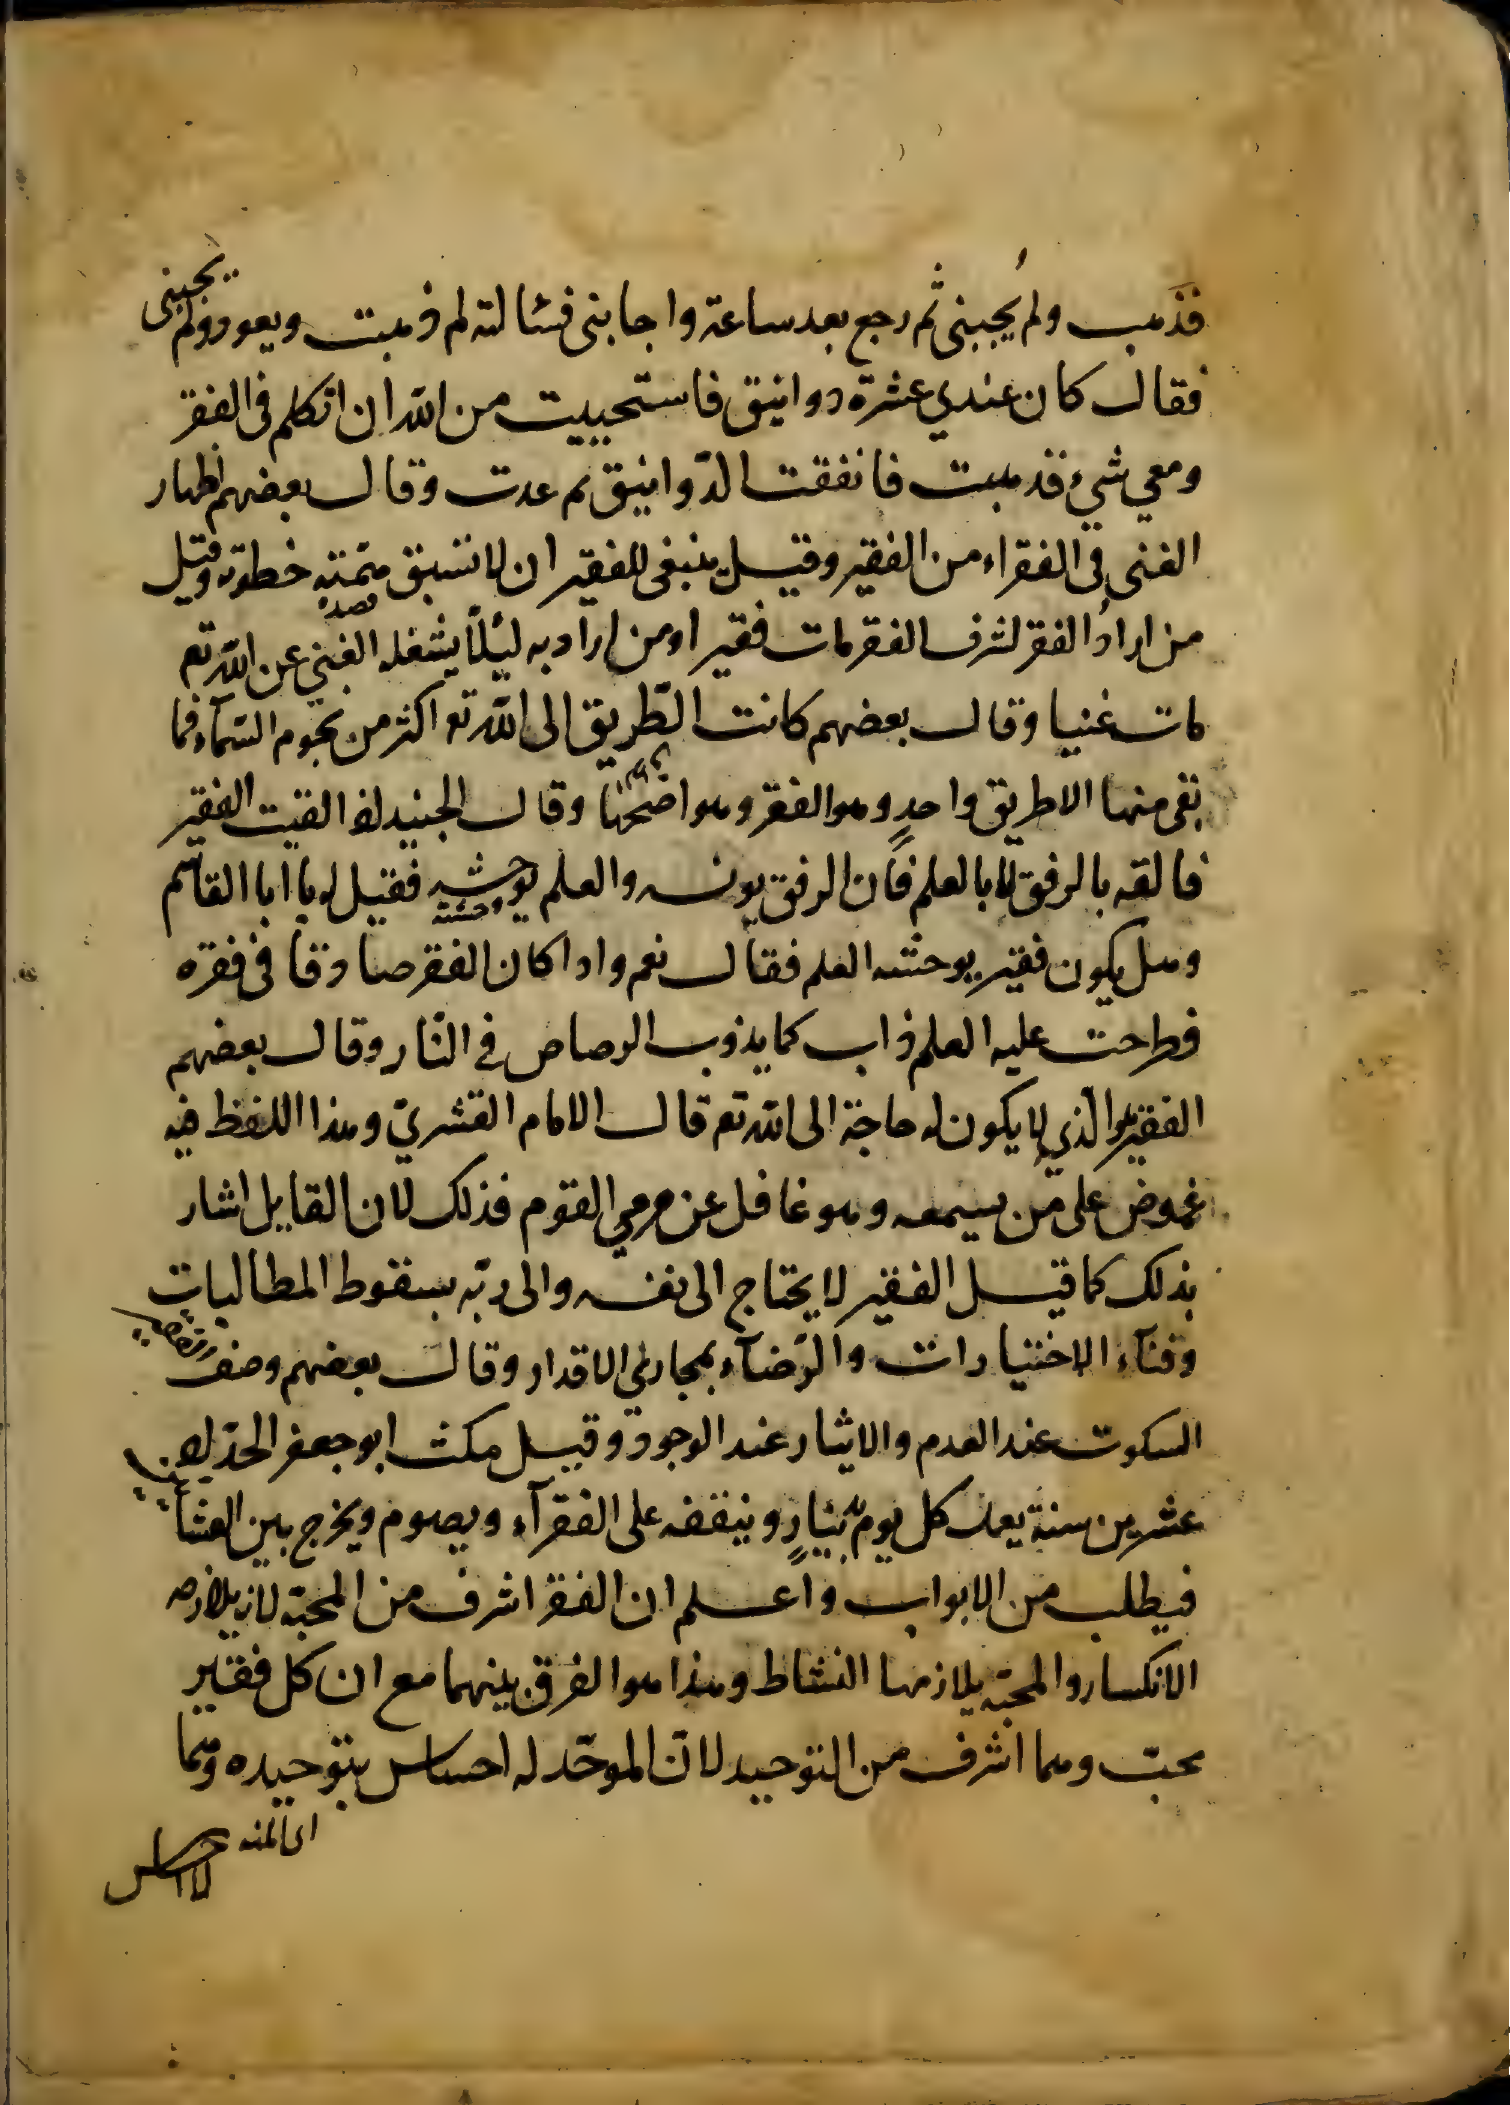 فذهب ولم يُجبنى ثم رجع بعد ساعة واجابنى فسئالته لم ذهبت ويعود ولم يجبنى
فقال كان عندي عشرة دوانيق فاستحييت من الله ان اتكلم فى الفقر
ومعي شيء فذهبت فانفقت الدّوانيق ثم عدت وقال بعضهم اظهار
الغنى فى الفقراء من الفقير وقيل ينبغى للفقير ان لا تسبق همّته خطوته وقيل
قصده
من اراد الفقر لشرف الفقر مات فقيرا ومن اراد به ليئلاّ يشغله الغني عن الله تع
مات غنيا وقال بعضهم كانت الطّريق الى الله تع اكثر من نجوم السّمآء فما
بقى منها الا طريق واحدٍ وهو الفقر وهو اضحها وقال الجنيد اذا لقيت الفقير
فالقه بالرفق لا بالعلم فان الرفق يونسه والعلم يوحشه فقيل له يا ابا القاسم
وحشته
وهل يكون فقير يوحشه العلم فقال نعم واذا كان الفقر صادقا فى فقره
فطرحت عليه العلم ذاب كما يذوب الرصاص فى النّار وقال بعضهم
الفقير هو الّذي لا يكون له حاجة الى الله تع قال الامام القشريّ وهذا اللفظ فيه
غموض على من يسمعه وهو غافل عن مرمي القوم فذلك لان القايل اشار
بذلك كما قيل الفقير لا يحتاج الى نفسه والى ربّه بسقوط المطالبات
وفنآء الاختيارات والرّضآء بمجاري الاقدار وقال بعضهم وصف
السكوت عند العدم والايثار عند الوجود وقيل مكث ابو جعفر الحدّاد
عشرين سنة يعمل كل يوم بدينارٍ وينفقه على الفقرآء ويصوم ويخرج بين العشائين
فيطلب من الابواب واعلم ان الفقر اشرف من المحبّة لانه يلازمه
الانكسار والمحبّة يلازمها النشاط وهذا هو الفرق بينهما مع ان كل فقير
محبّ وهما اشرف من التوحيد لانّ الموحّد له احساس بتوحيده وهما
لا احساس